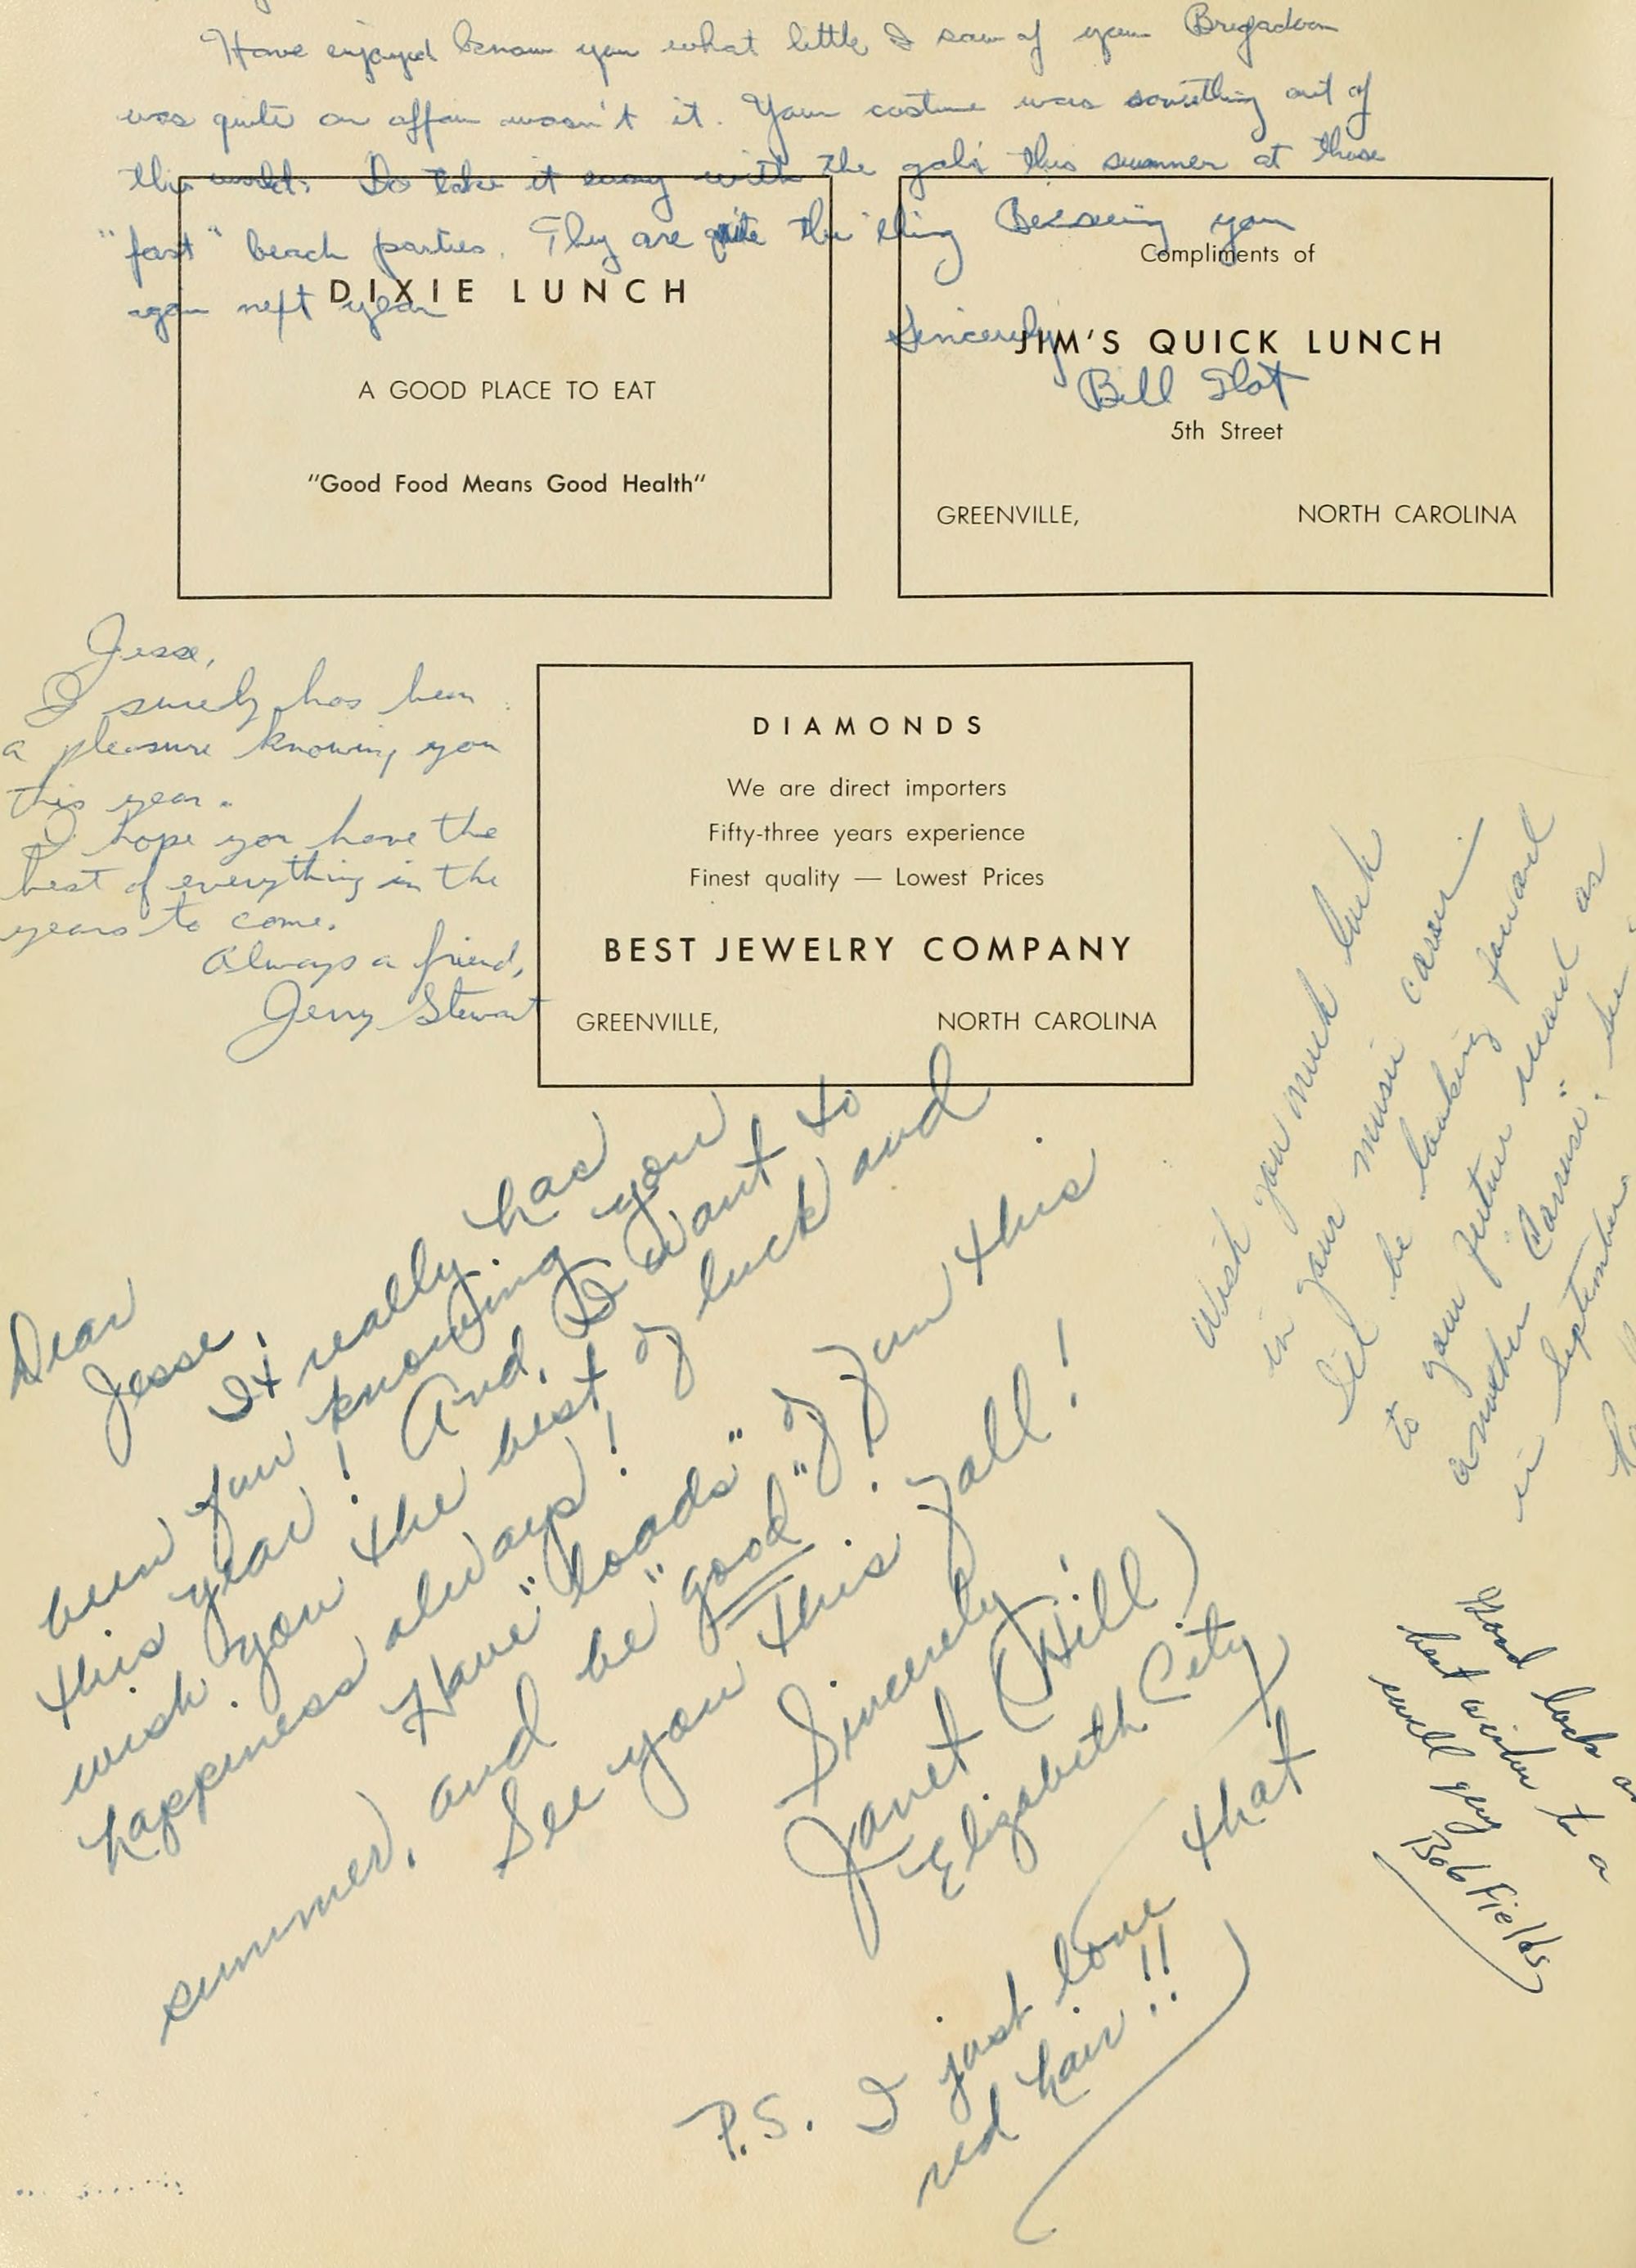 Have enjoyed know you what little I saw of you Brigadoon
was quite an affair wasn't it. Your costume was something out of
this world. Do take it easy with the gals this summer at those
"fast" beach parties. They are quite the thing Beeseeing you
again next year
Sincerely
Bill
DIXIE LUNCH
A GOOD PLACE TO EAT
"Good Food Means Good Health"
Compliments of
JIM'S QUICK LUNCH
5th Street
GREENVILLE, NORTH CAROLINA
Jesse,
I surely has been
a pleasure knowing you
this year.
I hope you have the
best of everything in the
years to come.
Always a friend,
Jerry Stewart
DIAMONDS
We are direct importers
Fifty-three years experience
Finest quality — Lowest Prices
BEST JEWELRY COMPANY
GREENVILLE, NORTH CAROLINA
Wish you much luck
in your music career —
I'll be looking forward
to your future record as
another "Caruso". See
in September
Dear
Jesse,
It really has
been fun knowing you
this year! And, I want to
wish you the best of luck and
happiness always!
Have "loads" of fun this
summer, and be "good"!
See you this fall!
Sincerely,
Janet (Hill)
Elizabeth City
P.S. I just love that
red hair!!
Good luck
best wishes to a
swell guy
Bob Fields